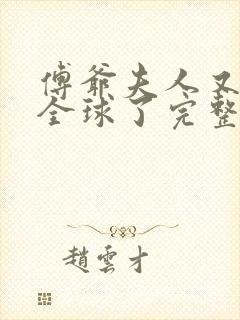 傅爺夫人又
全球了完整
趙雲才